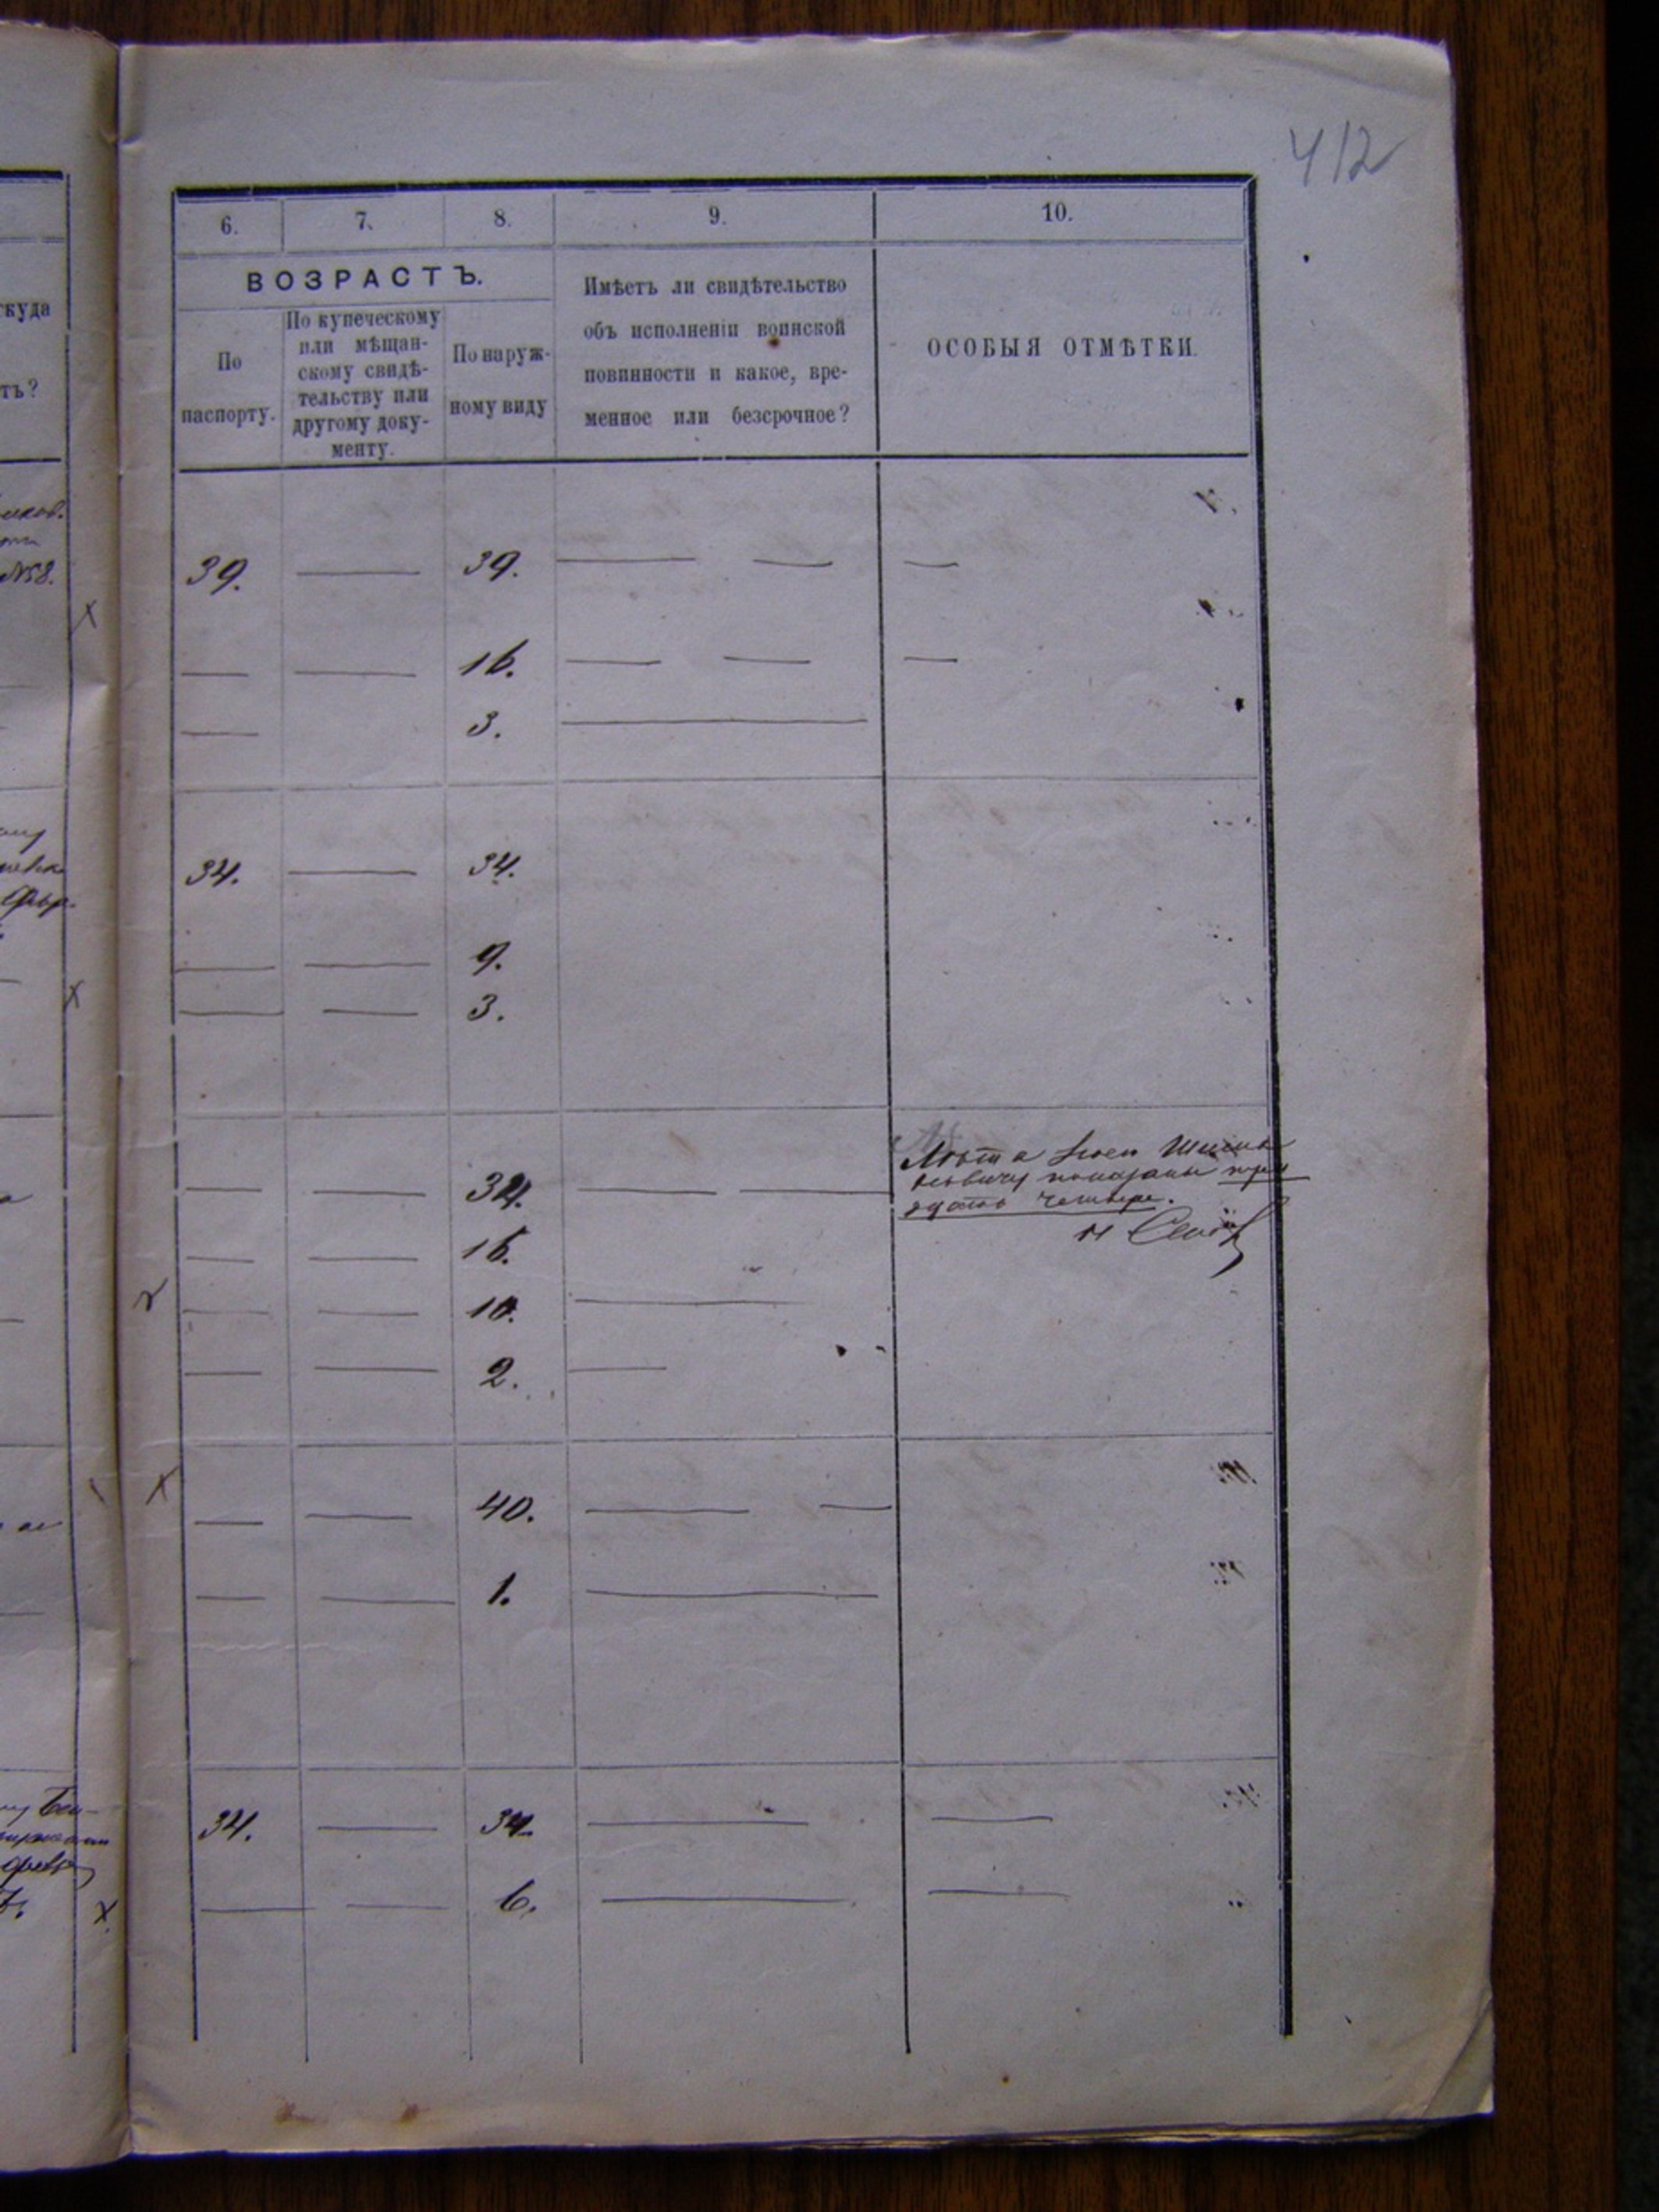 412
6. 7. 8. 9. 10.
ВОЗРАСТЪ.
По
паспорту.
По купеческому
или мѣщан-
скому свидѣ-
тельству или
другому доку-
менту.
По наруж-
ному виду
Имѣетъ ли свидѣтельство
объ исполненіи воинской
повинности и какое, вре-
менное или безсрочное?
ОСОБЫЯ ОТМѢТКИ.
ткуда
тъ?
№8.
39. — 39. — — —
— — 16. — — —
— 3. —
34. — 34.
— — 9.
— — 3.
— — 34. — —
Лѣта
показаны
четыре.
— — 16.
— — 10. —
— — 2. —
— — 40. — —
— — 1. —
34. — 34. — —
— — 6. — —